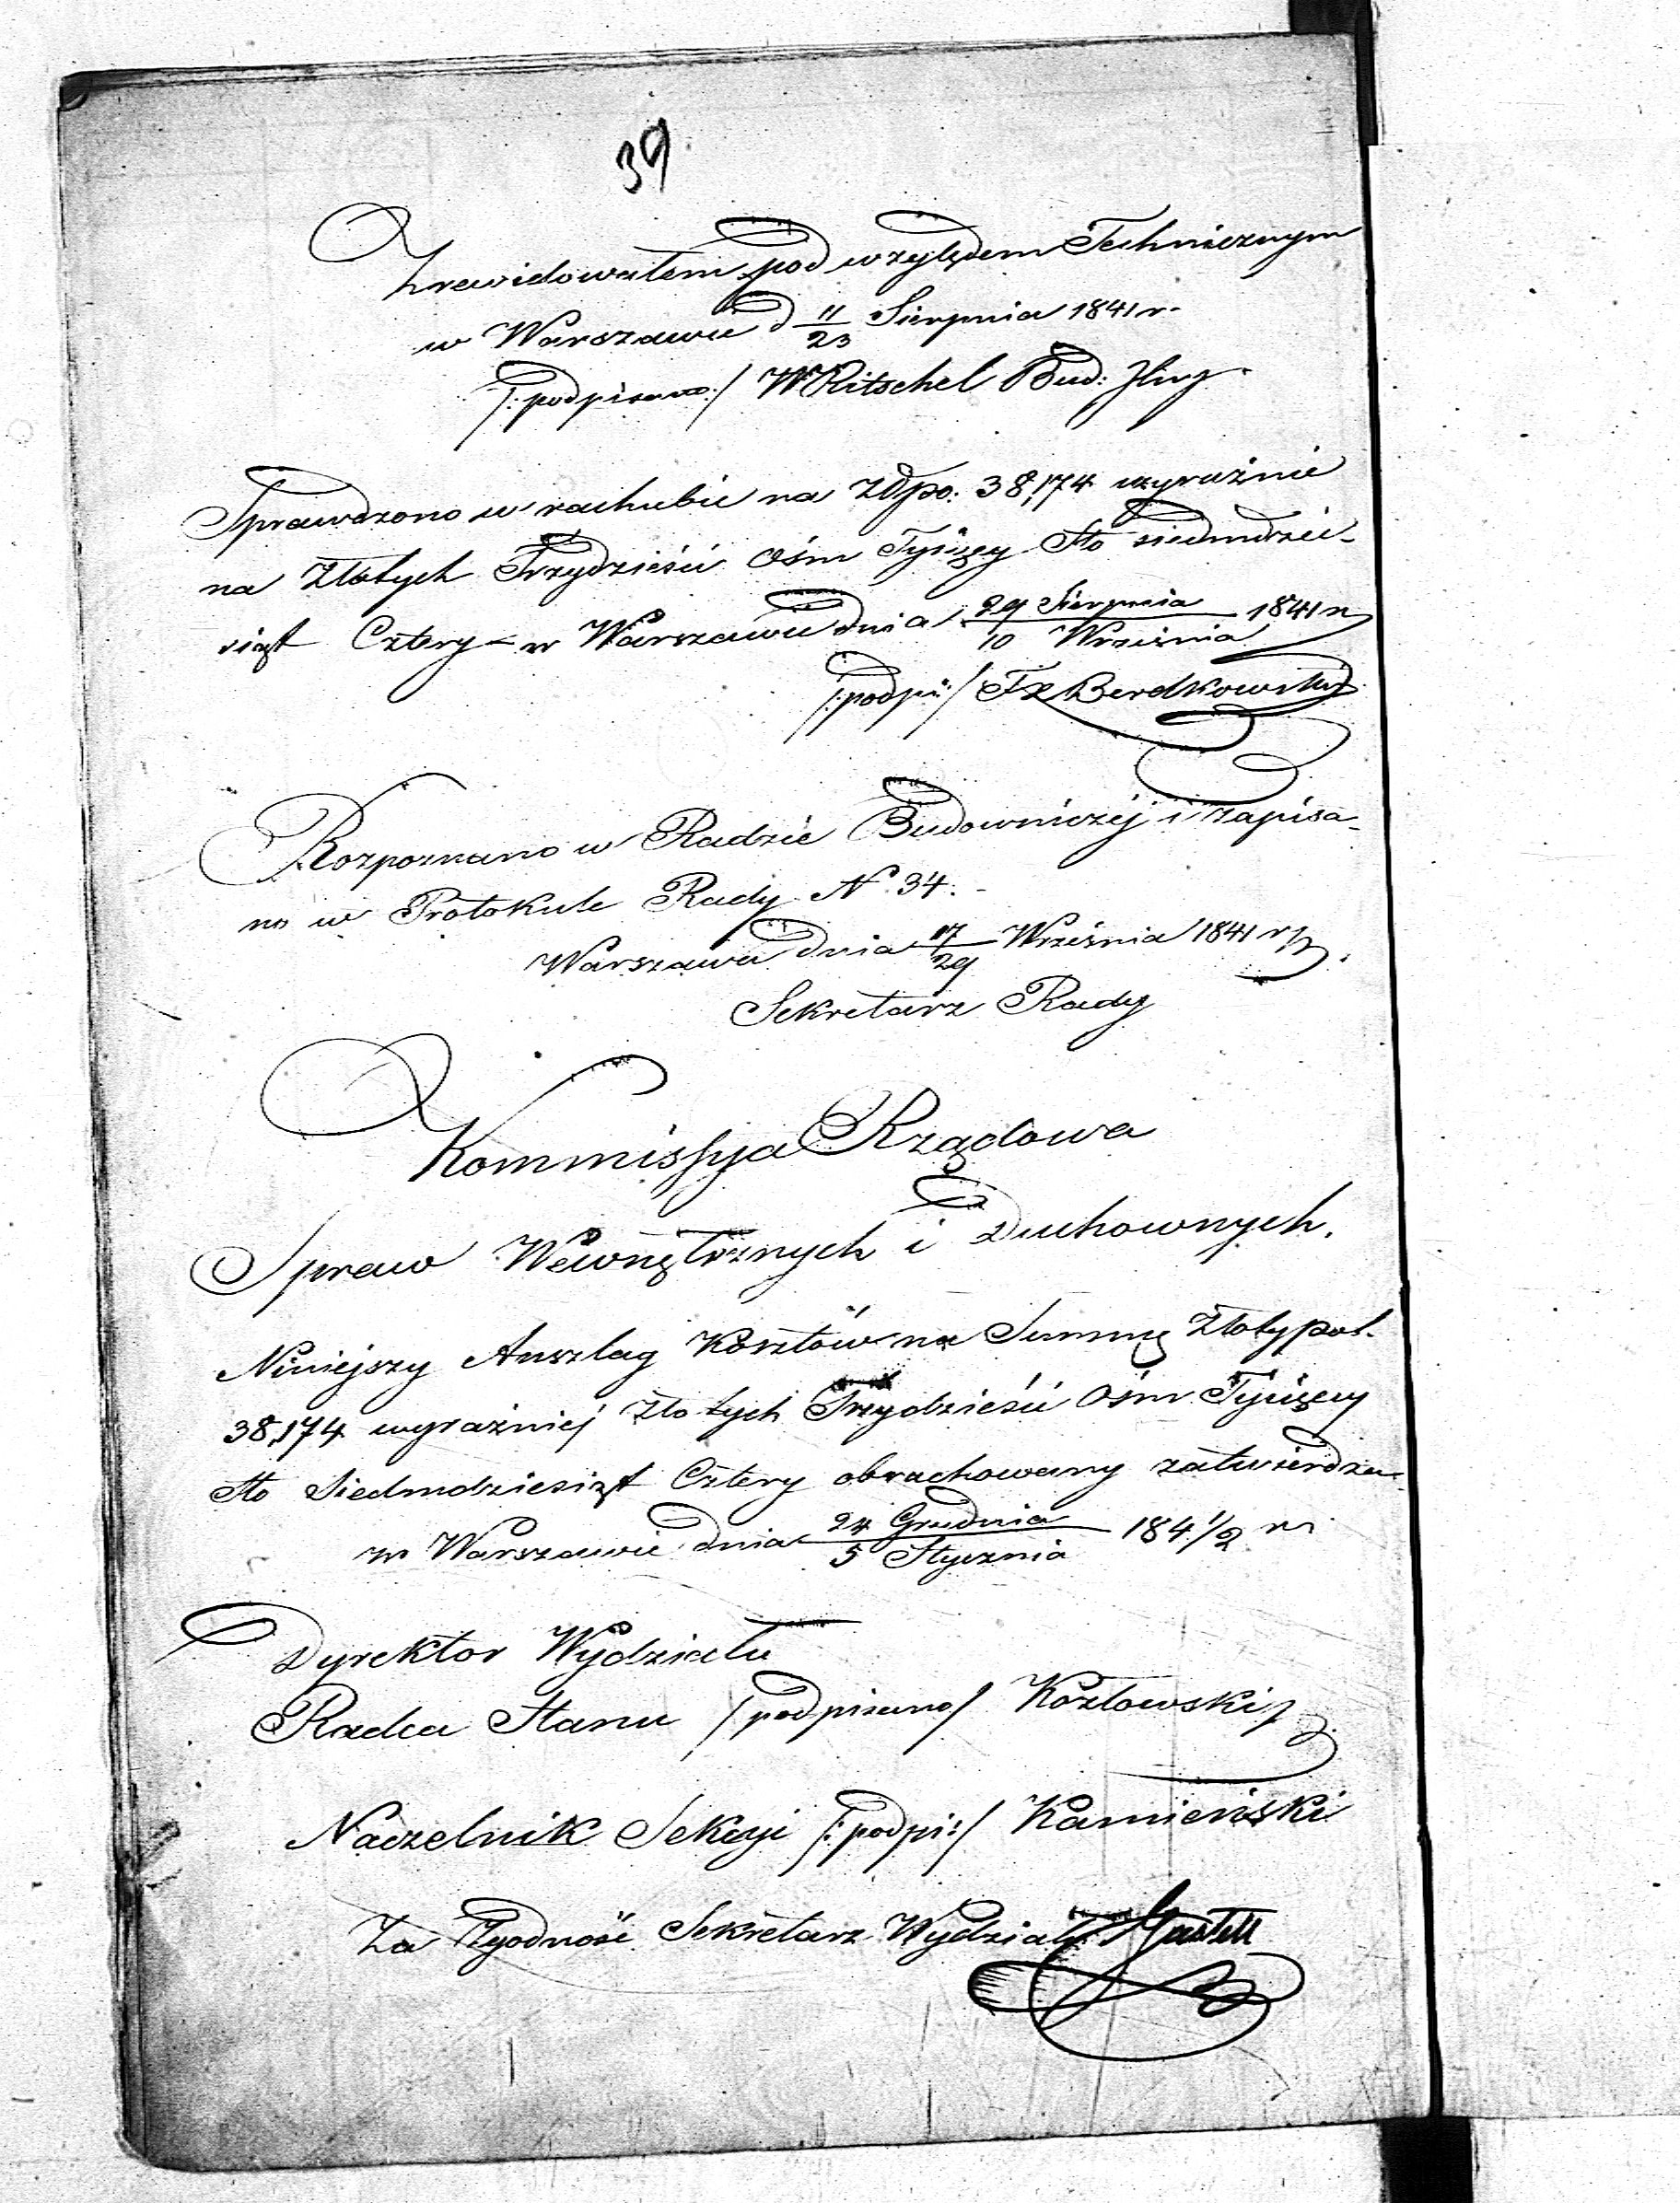 39
Zrewidowałem pod względem Technicznym
w Warszawie d 11/23 Sierpnia 1841 r.
/:podpisano:/ W Ritschel Bud:
Sprawdzono w rachubie na Złpo: 38,174 wyraźnie
na Złotych Trzydzieści Ośm Tysięcy Sto siedmdzie-
siąt Cztery - w Warszawie dnia 29 Sierpnia/10 Września 1841 r
/:podpi:/ Berdkowski
Rozpoznano w Radzie Budowniczéj i zapisa-
no w Protokule Rady N 34.
Warszawa dnia 17/29 Września 1841 r
Sekretarz Rady
Kommissya Rządowa
Spraw Wewnętrznych i Duchownych.
Niniejszy Anszlag Kosztów na Summę Złotypol.
38,174 wyraźniej Złotych Trzydzieści Ośm Tysięcy
Sto Siedmdziesiąt Cztery obrachowany zatwierdza
w Warszawie dnia 24 Grudnia/5 Stycznia 184 1/2 r.
Dyrektor Wydziału
Radca Stanu /podpisano/ Kozłowski
Naczelnik Sekcyi /:podpi:/ Kamieński
Za Zgodność Sekretarz Wydziału